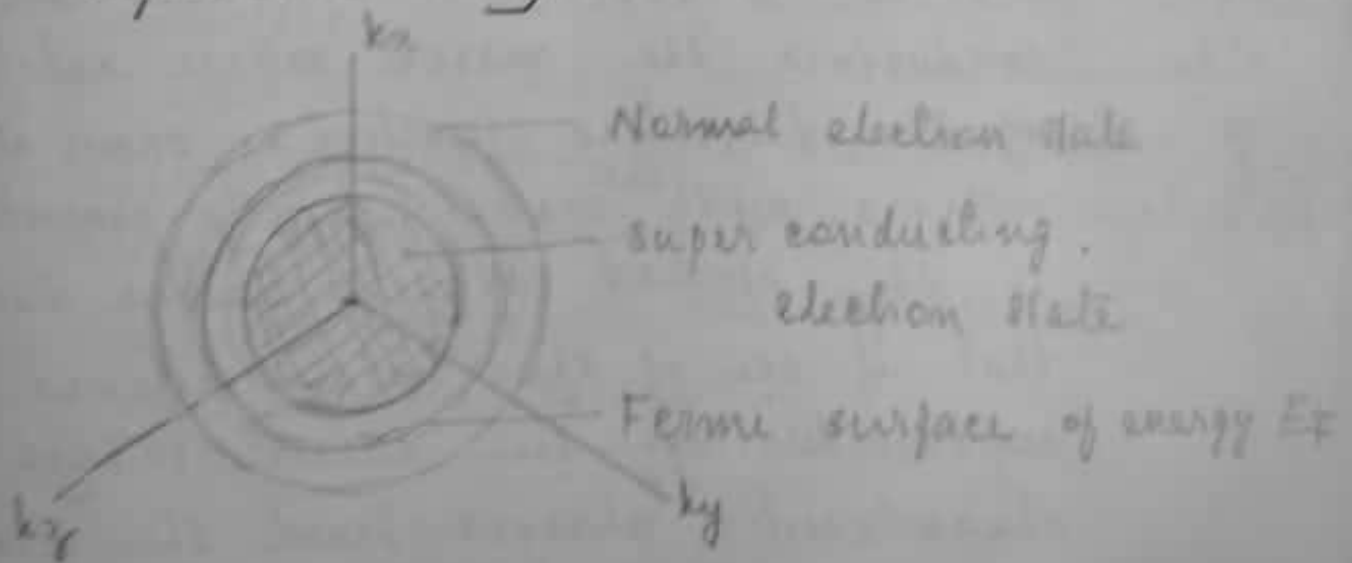 kz
Normal election state
super conducting.
election state
Fermi surface of energy EF
ky